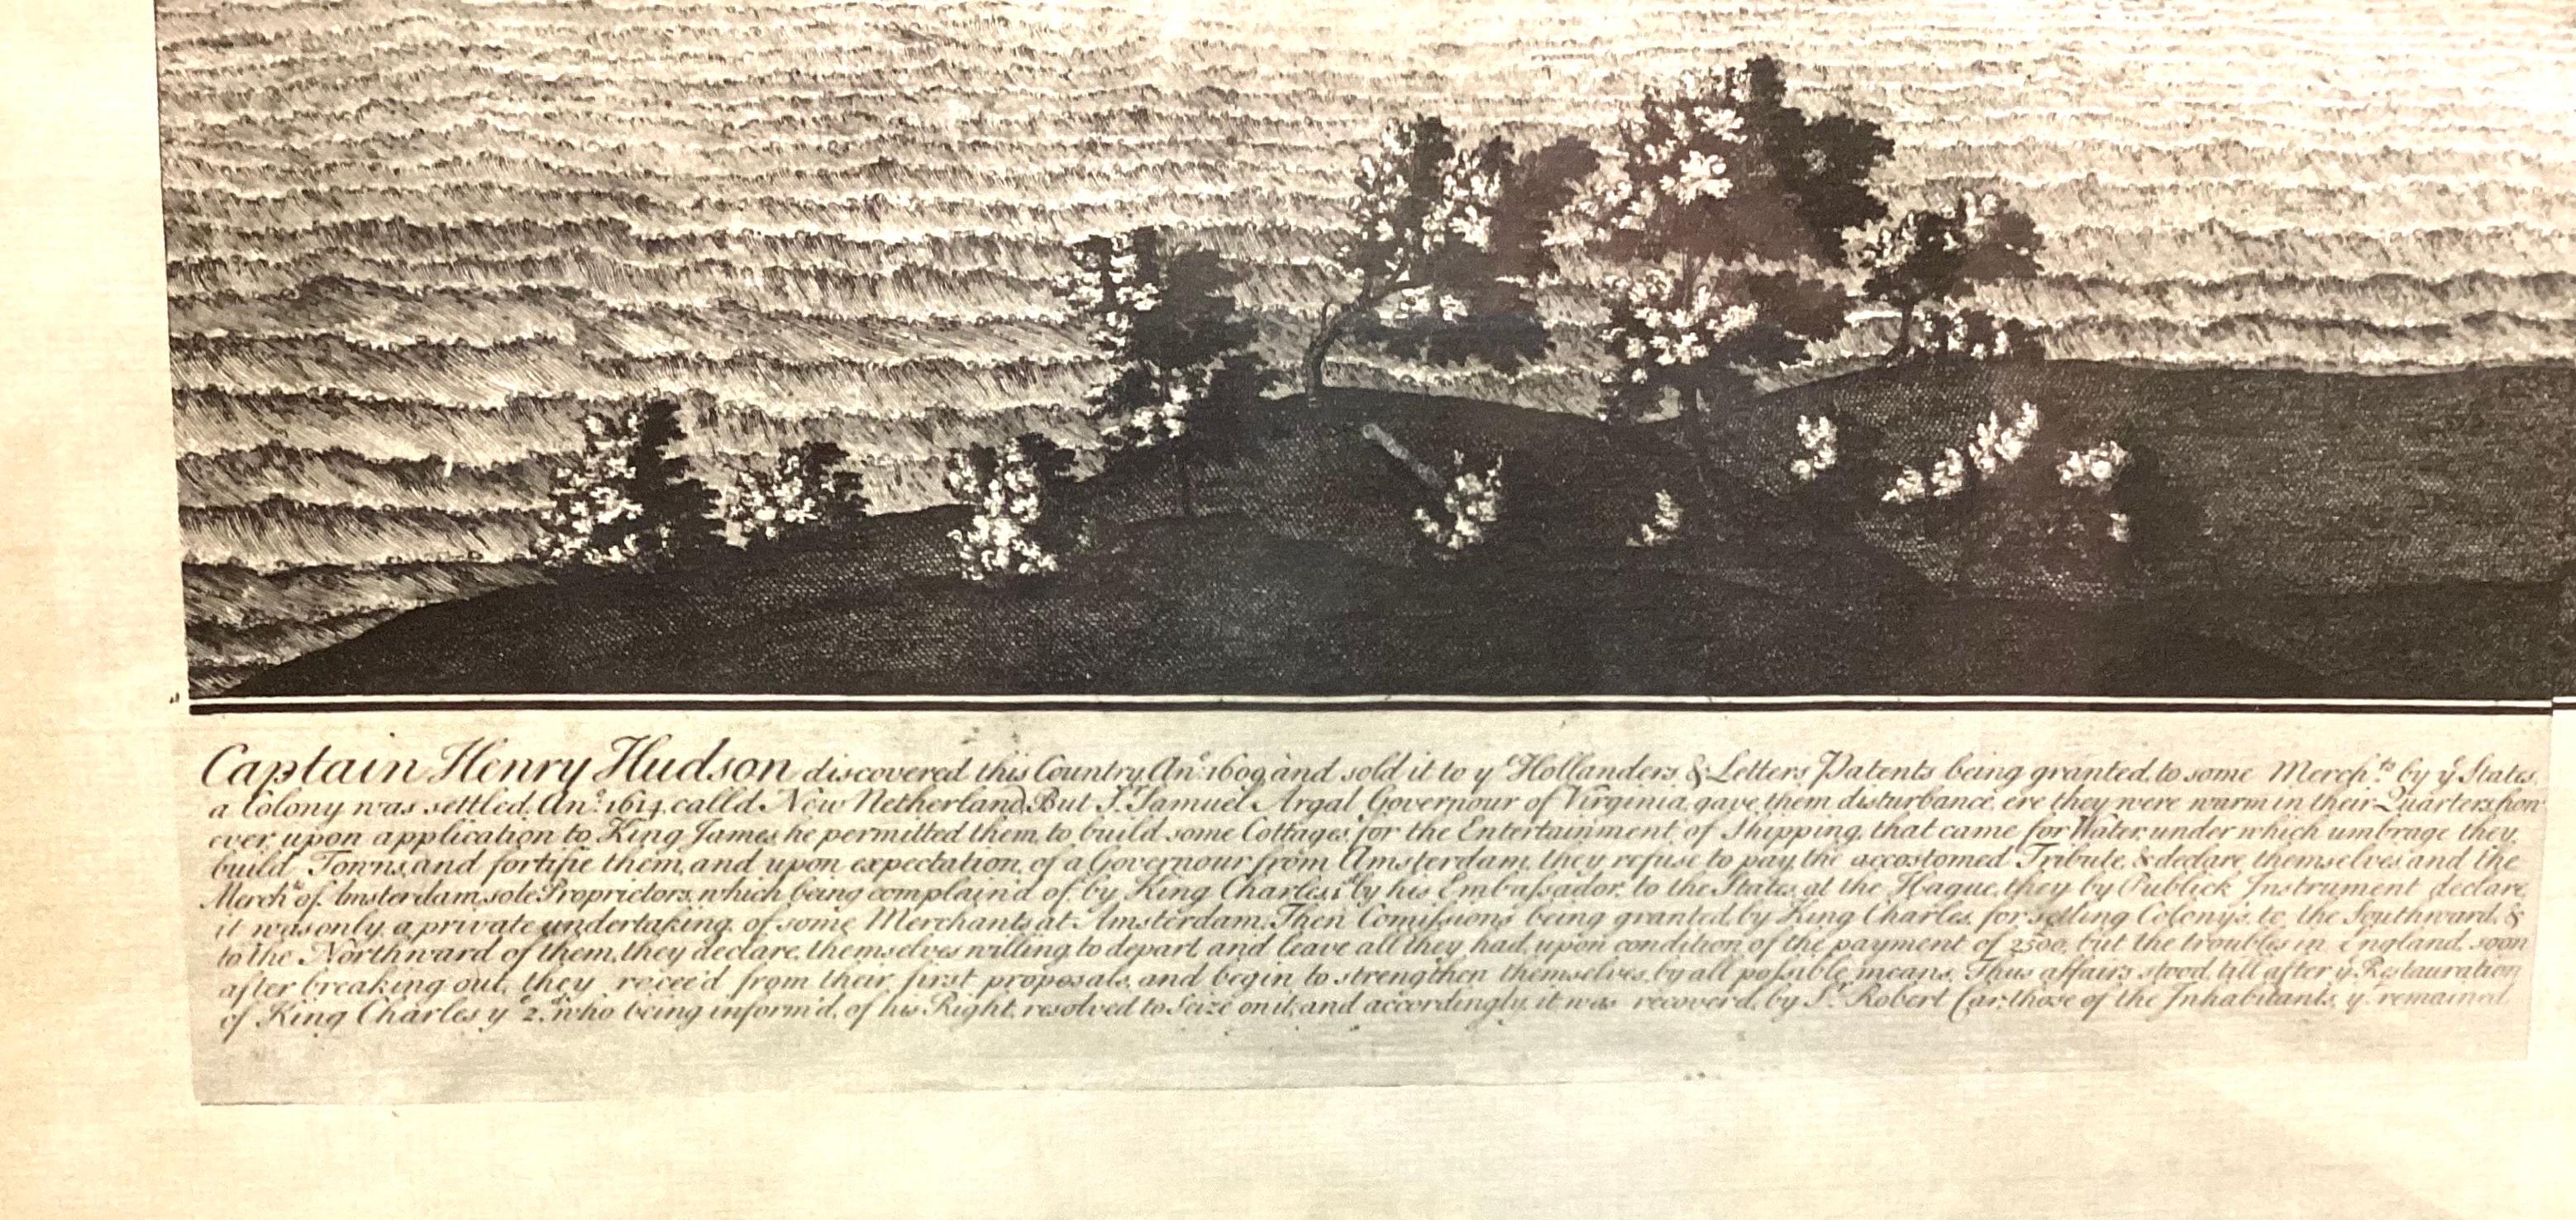 Captain Henry Hudson discovered this Country, An.º 1609, and sold it to yᵉ Hollanders & Letters Patents being granted, to some Merch.ᵗˢ by yᵉ States,
a Colony was settled, An.º 1614, call'd New Netherland, But Sʳ Samuel Argal Governour of Virginia, gave them disturbance, ere they were warm in their Quarters, how
ever, upon application to King James, he permitted them, to build some Cottages, for the Entertainment of Shipping, that came for Water, under which umbrage they,
build Towns, and fortifie them, and upon expectation, of a Governour from Amsterdam, they refuse to pay, the accostomed Tribute, & declare themselves and the
Merchᵗˢ of Amsterdam, sole Proprietors, which being complain'd of, by King Charles, 1ˢᵗ by his Embaſsador, to the States, at the Hague, they by Publick Instrument declare,
it was only, a private undertaking, of some Merchants at Amsterdam, Then Comiſsions being granted, by King Charles, for setling Colony's, to, the Southward, &
to the Northward of them, they declare, themselves willing, to depart, and leave all they had, upon condition, of the payment of 2500, but the troubles in England, soon
after breaking out, they receed from their first proposals, and begin to strengthen themselves, by all poſsible means, Thus affairs stood, till after yᵉ Restauration
of King Charles yᵉ 2ᵈ who being inform'd, of his Right, resolved to Seize on it, and accordingly, it was recover'd, by Sʳ Robert Car, those of the Inhabitants, yᵗ remained